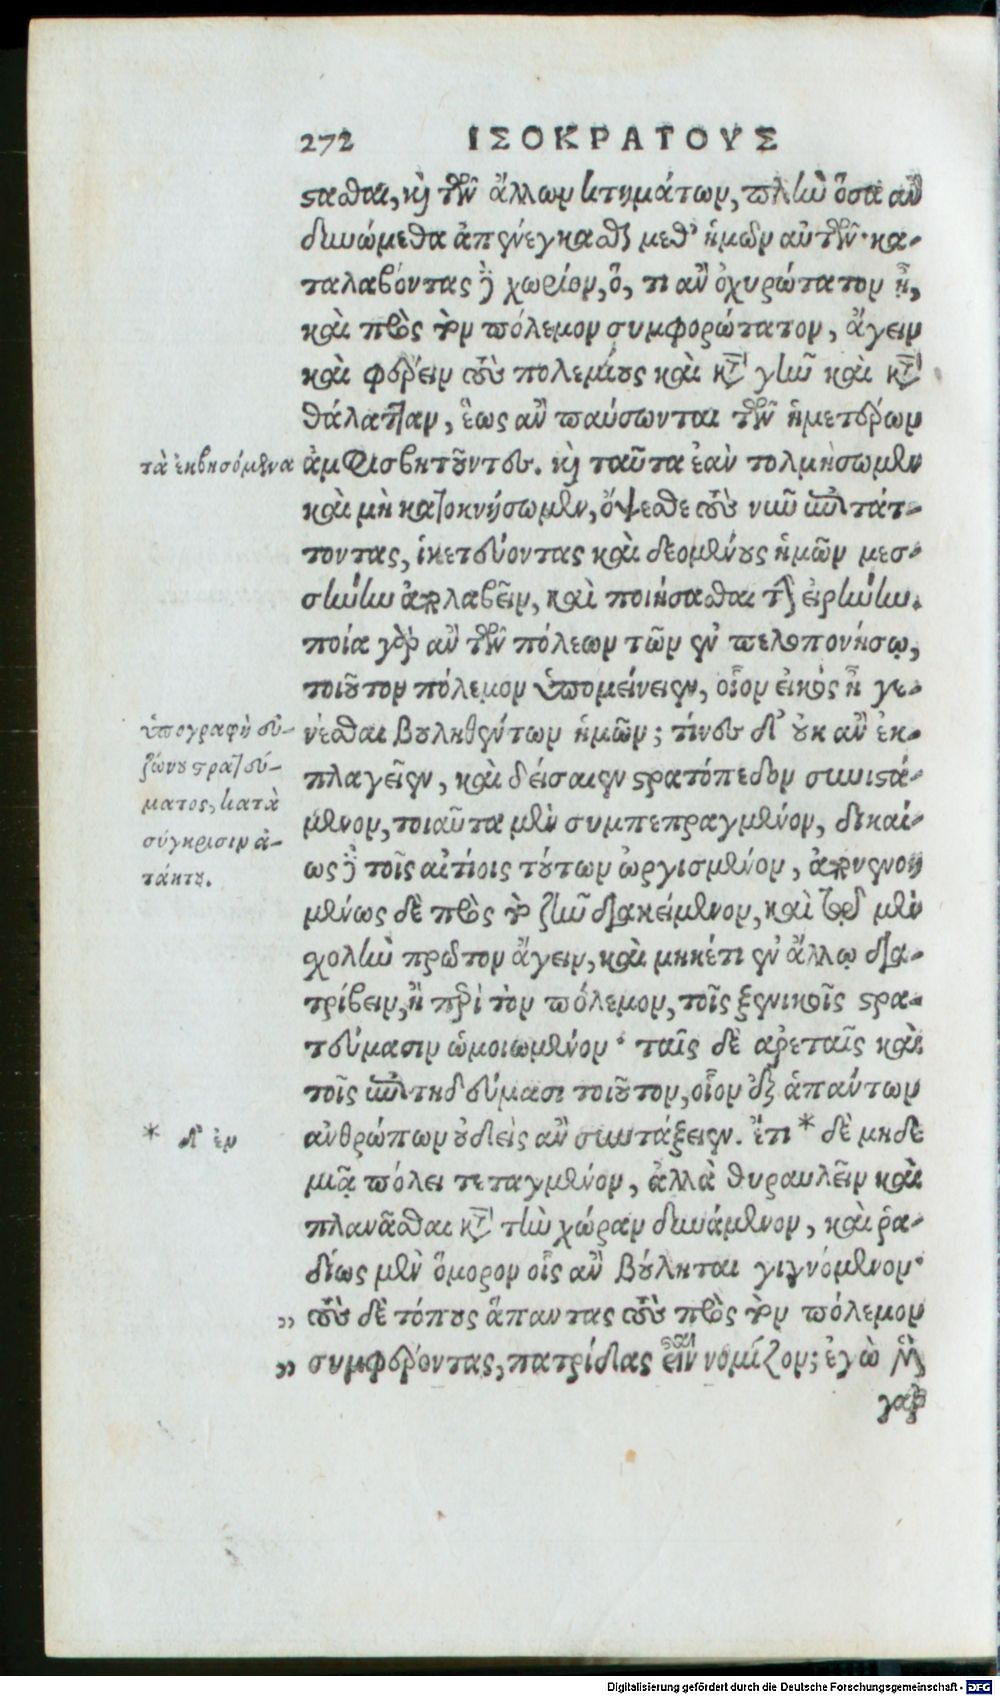 272 ΙΣΟΚΡΑΤΟΥΣ
σασθαι, καὶ τῶν ἄλλων κτημάτων, πλὴν ὅσα ἂν
δυνώμεθα ἀπενέγκασθαι μεθ' ἡμῶν αὐτῶν· κα-
ταλαβόντας δὲ χωρίον, ὅ, τι ἂν ὀχυρώτατον ᾖ,
καὶ πρὸς τὸν πόλεμον συμφορώτατον, ἄγειν
καὶ φέρειν τοὺς πολεμίους καὶ κατὰ γῆν καὶ κατὰ
θάλατταν, ἕως ἂν παύσωνται τῶν ἡμετέρων
τὰ ἐκβησόμενα
ἀμφισβητοῦντες. καὶ ταῦτα ἐὰν τολμήσωμεν
καὶ μὴ κατοκνήσωμεν, ὄψεσθε τοὺς νῦν ἐπιτάτ-
τοντας, ἱκετεύοντας καὶ δεομένους ἡμῶν μεσ-
σήνην ἀπολαβεῖν, καὶ ποιήσασθαι τὴν εἰρήνην.
ποία γὰρ ἂν τῶν πόλεων τῶν ἐν πελοπονήσῳ,
τοιοῦτον πόλεμον ὑπομείνειεν, οἷον εἰκὸς ἦ γε-
ὑπογραφὴ εὐ-
ζώνου στρατεύ-
ματος, κατὰ
σύγκρισιν ἀ-
τάκτου.
νέσθαι βουληθέντων ἡμῶν; τίνες δ' οὐκ ἂν ἐκ-
πλαγεῖεν, καὶ δείσαιεν στρατόπεδον συνιστά-
μενον, τοιαῦτα μὲν συμπεπραγμένον, δικαί-
ως δὲ τοῖς αἰτίοις τούτων ὠργισμένον, ἀπονενοη
μένως δὲ πρὸς τὸ ζῆν διακείμενον, καὶ τῷ μὲν
σχολὴν πρῶτον ἄγειν, καὶ μηκέτι ἐν ἄλλῳ δια-
τρίβειν, ἢ περὶ τὸν πόλεμον, τοῖς ξενικοῖς στρα-
τεύμασιν ὡμοιωμένον· ταῖς δὲ ἀρεταῖς καὶ
τοῖς ἐπιτηδεύμασι τοιοῦτον, οἷον ἐξ ἁπάντων
* δ' ἐν
ἀνθρώπων οὐδεὶς ἂν συντάξειεν. ἔτι * δὲ μηδε
μιᾷ πόλει τεταγμένον, ἀλλὰ θυραυλεῖν καὶ
πλανᾶσθαι κατὰ τὴν χώραν δυνάμενον, καὶ ῥα-
δίως μὲν ὅμορον οἷς ἂν βούληται γιγνόμενον·
,, τοὺς δὲ τόπους ἅπαντας τοὺς πρὸς τὸν πόλεμον
,, συμφέροντας, πατρίδας εἶναι νομίζον; ἐγὼ μὲν
γὰρ
Digitalisierung gefördert durch die Deutsche Forschungsgemeinschaft - DFG